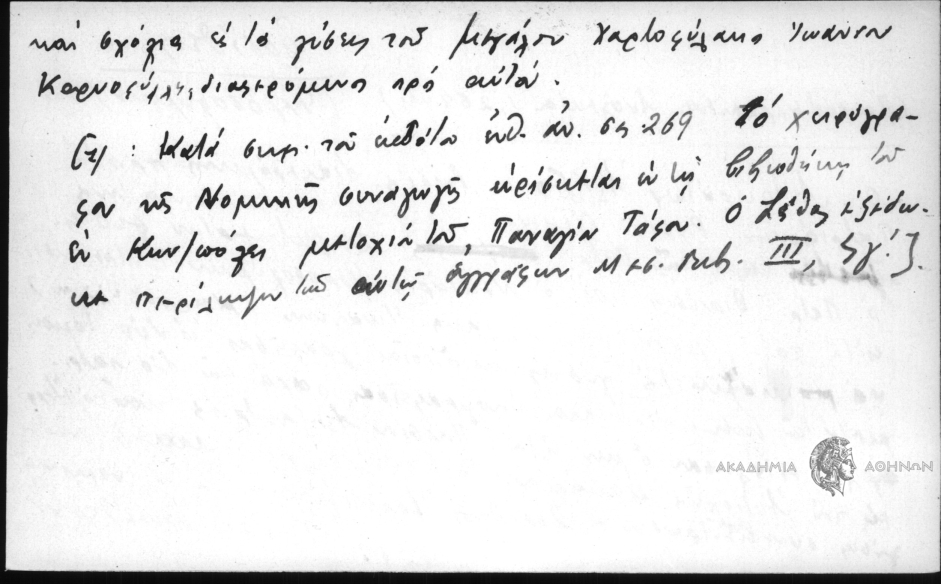 καὶ σχόλια εἰς τὰς λύσεις τοῦ μεγάλου Χαρτοφύλακος Ἰωάννου
Καρυοφύλλη διαφερόμενος πρὸς αὐτόν.
[(1) : Κατά σημ. τοῦ ἐκδότου ἐνθ. ἀν. σελ. 269 Τὸ χειρόγρα-
φον τῆς Νομικῆς συναγωγῆς εὑρίσκεται ἐν τῇ βιβλιοθήκῃ τοῦ
ἐν Κων/πόλει μετοχίου τοῦ Παναγίου Τάφου. Ὁ Σάθας ἐξέδω-
κε περίληψιν τῶν αὐτῆς ἐγγράφων Μεσ. Βιβ. III, ξγ΄.].
ΑΚΑΔΗΜΙΑ ΑΘΗΝΩΝ